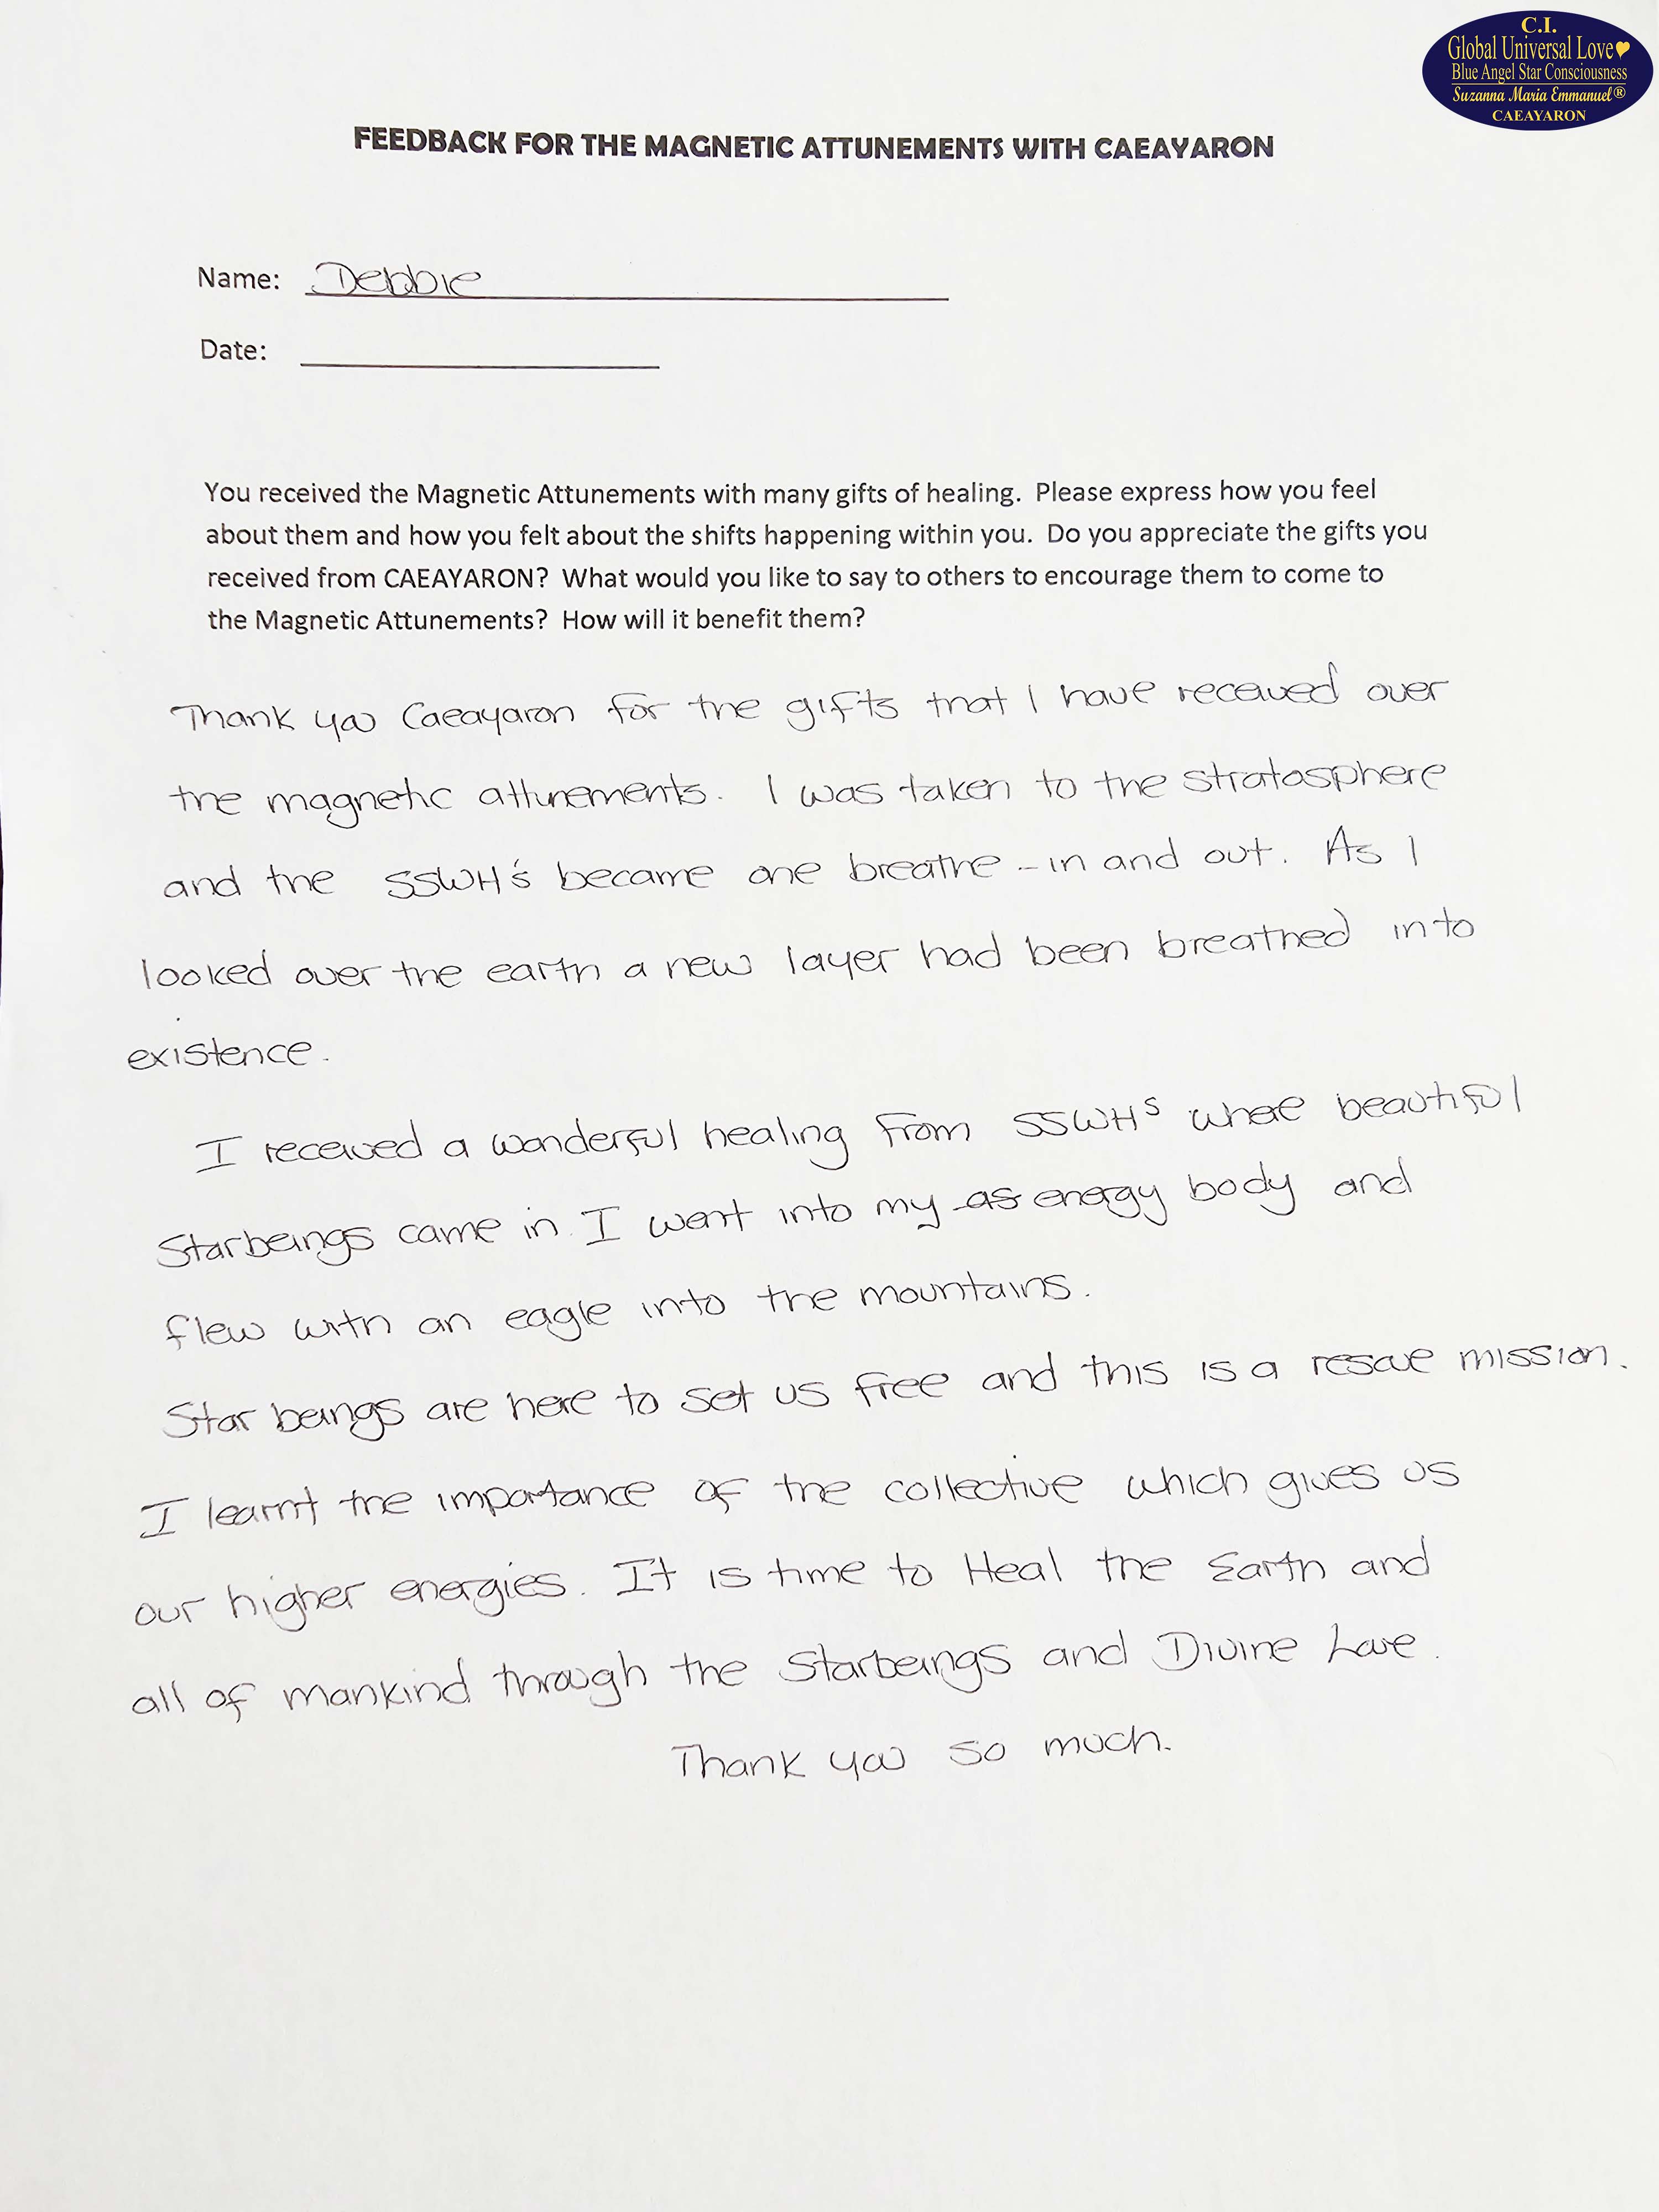 C.I.
Global Universal Love
Blue Angel Star Consciousness
Suzanna Maria Emmanuel®
CAEAYARON
FEEDBACK FOR THE MAGNETIC ATTUNEMENTS WITH CAEAYARON
Name: Debbie
Date:
You received the Magnetic Attunements with many gifts of healing. Please express how you feel
about them and how you felt about the shifts happening within you. Do you appreciate the gifts you
received from CAEAYARON? What would you like to say to others to encourage them to come to
the Magnetic Attunements? How will it benefit them?
Thank you Caeayaron for the gifts that I have received over
the magnetic attunements. I was taken to the stratosphere
and the SSWH's became one breathe - in and out. As I
looked over the earth a new layer had been breathed into
existence.
I received a wonderful healing from SSWHs where beautiful
Starbeings came in. I went into my as energy body and
flew with an eagle into the mountains.
Star beings are here to set us free and this is a rescue mission.
I learnt the importance of the collective which gives us
our higher energies. It is time to Heal the Earth and
all of mankind through the Starbeings and Divine Love.
Thank you so much.